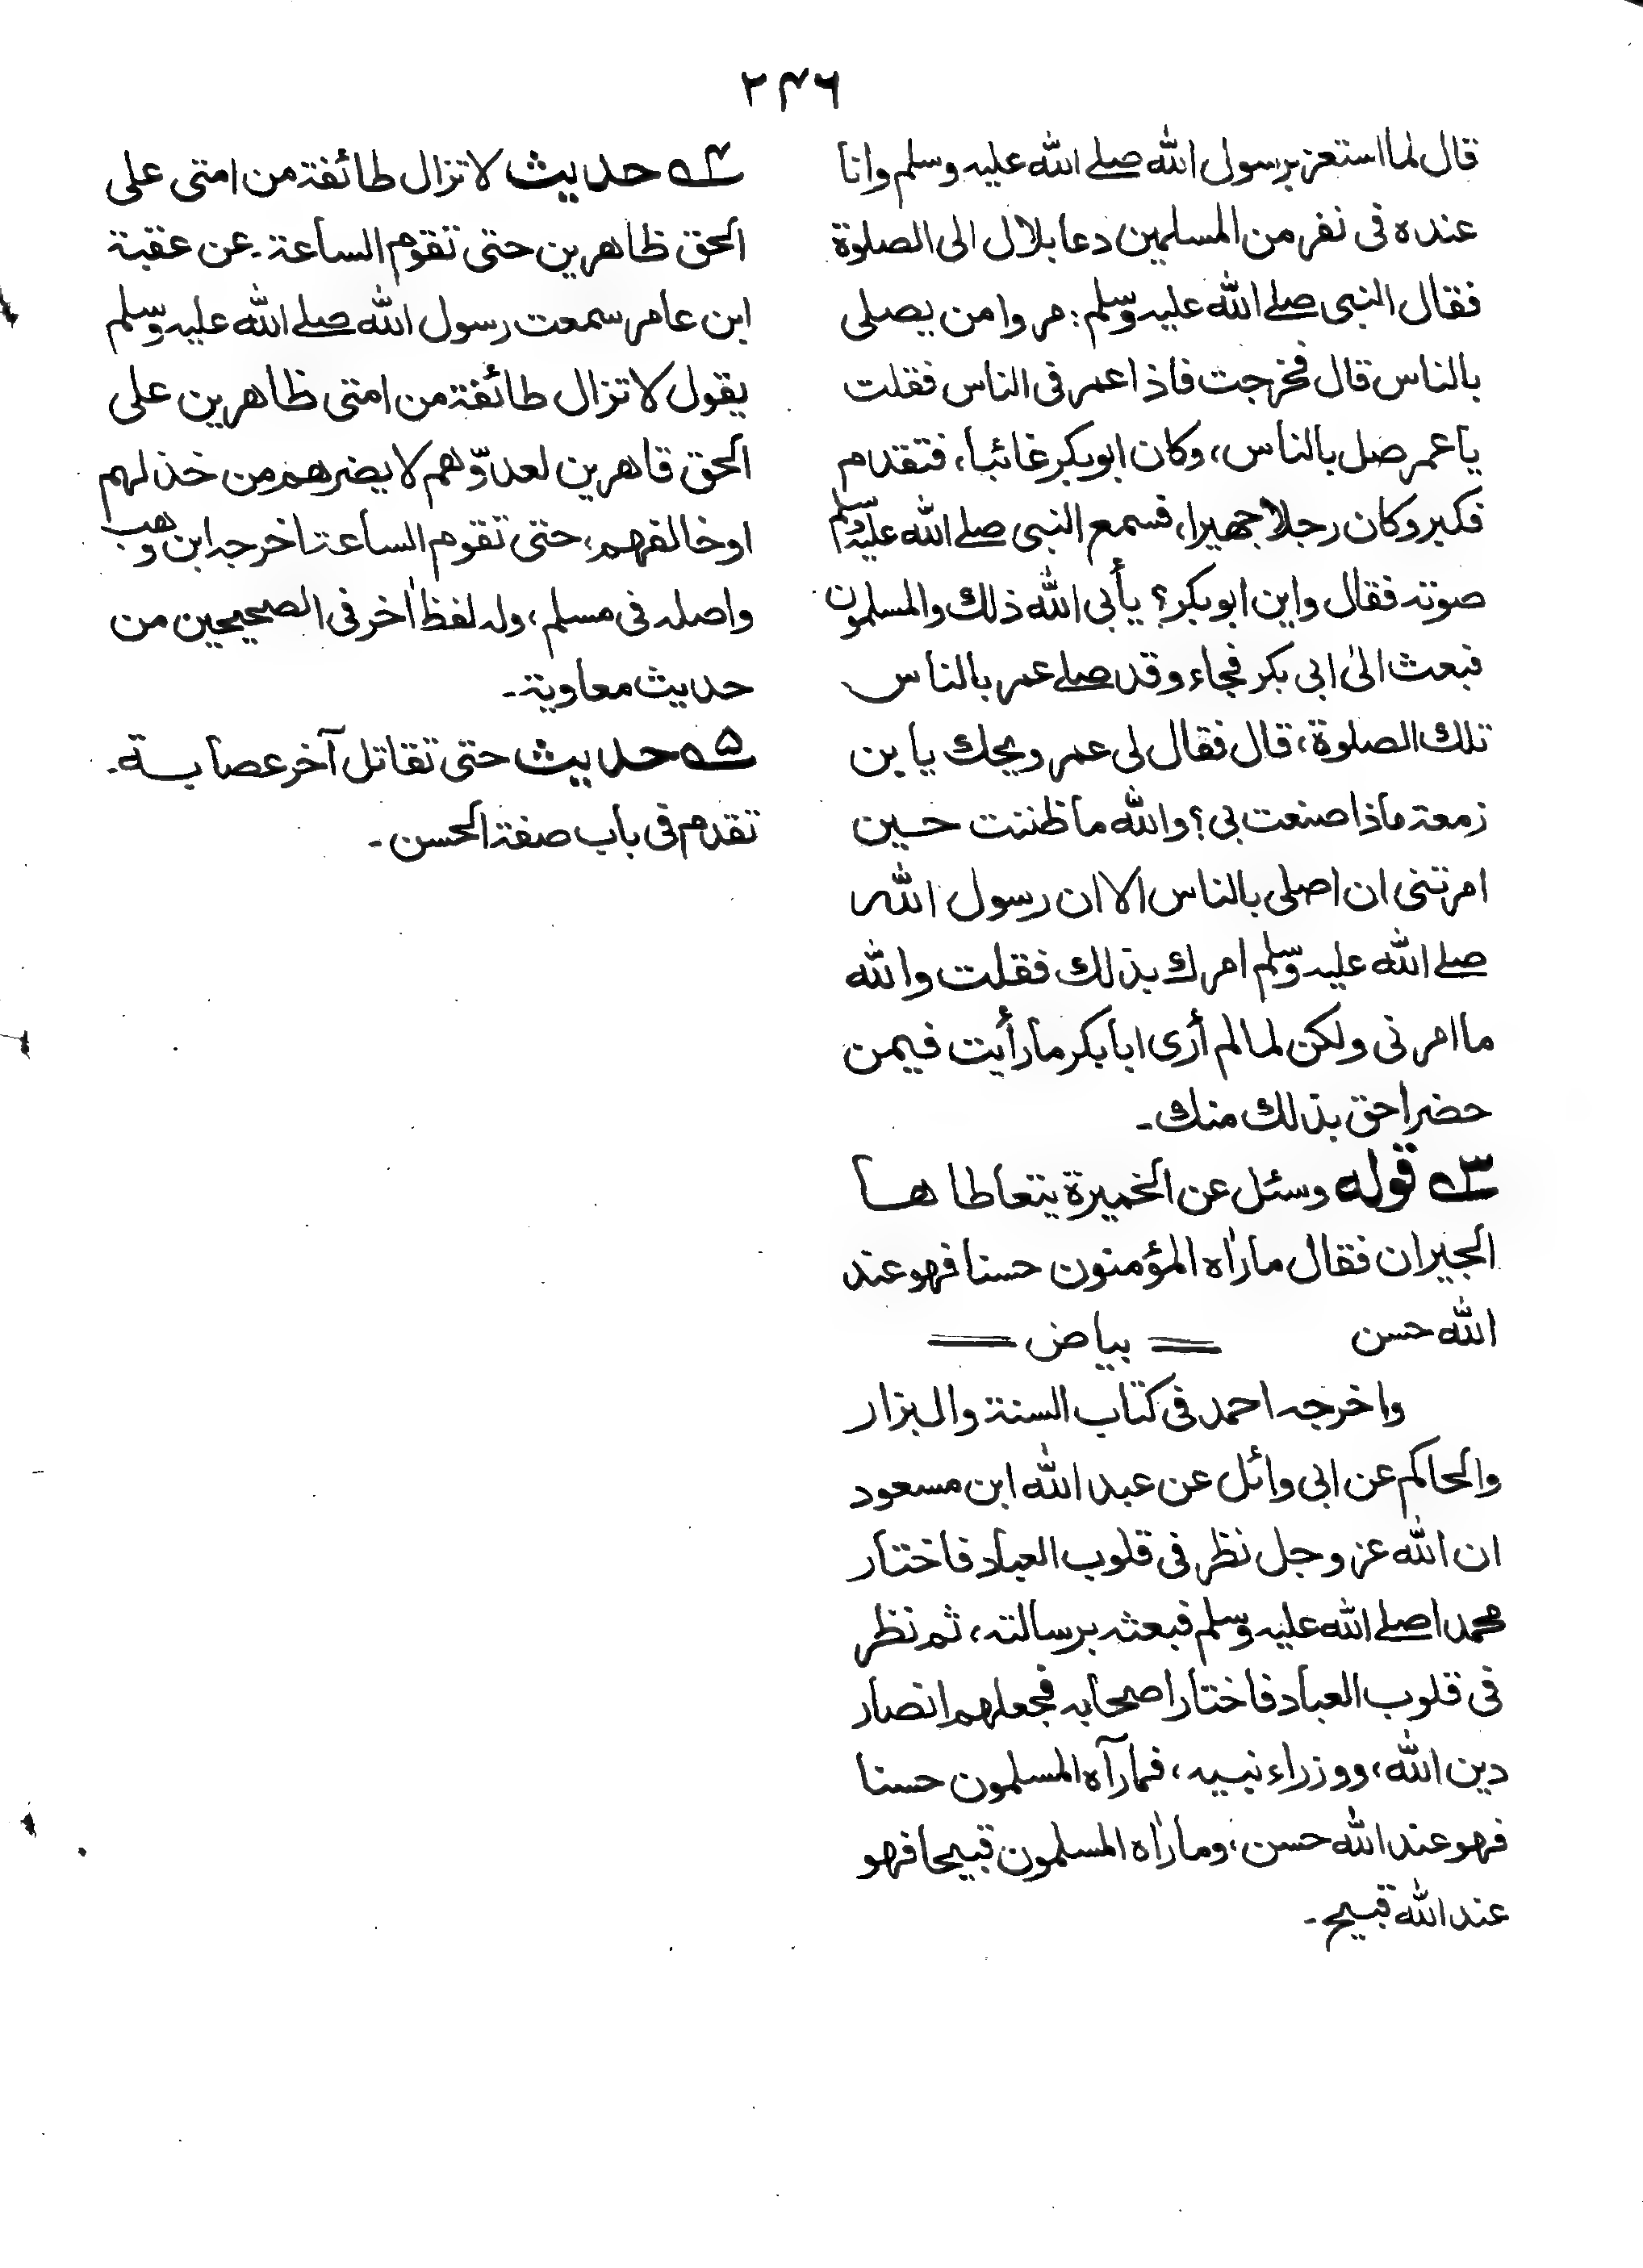 ۲۴۶
قال لما استعز برسول الله صلے الله علیہ وسلم وانا
عنده فی نفر من المسلمین دعا بلال الی الصلوة
فقال النبی صلے الله علیہ وسلم: مروا من یصلی
بالناس قال فخرجت فاذا عمر فی الناس فقلت
یا عمر صل بالناس، وکان ابوبکر غائبا، فتقدم
فکبر وکان رجلا جھیرا، فسمع النبی صلے الله علیہ وسلم
صوتہ فقال واین ابوبکر؟ یأبی الله ذلك والمسلمون
فبعث الیٰ ابی بکر فجاء وقد صلے عمر بالناس
تلك الصلوة، قال فقال لی عمر ویحك یا بن
زمعۃ ماذا صنعت بی؟ والله ما ظننت حین
امرتنی ان اصلی بالناس الا ان رسول الله
صلے الله علیہ وسلم امرك بذلك فقلت والله
ما امرنی ولکن لما لم أری ابا بکر ما رأیت فیمن
حضر احق بذلك منك۔
۳ قوله وسئل عن الخمیرة یتعاطاھا
الجیران فقال ما راٰه المؤمنون حسنا فھو عند
الله حسن = بیاض =
واخرجہ احمد فی کتاب السنۃ والبزار
والحاکم عن ابی وائل عن عبد الله ابن مسعود
ان الله عز وجل نظر فی قلوب العباد فاختار
محمدا صلے الله علیہ وسلم فبعثہ برسالتہ، ثم نظر
فی قلوب العباد فاختار اصحابہ فجعلھم انصار
دین الله، ووزراء نبیہ، فما رآه المسلمون حسنا
فھو عند الله حسن، وما راٰه المسلمون قبیحا فھو
عند الله قبیح۔
۴ حدیث لا تزال طائفۃ من امتی علی
الحق ظاھرین حتی تقوم الساعۃ۔ عن عقبۃ
ابن عامر سمعت رسول الله صلے الله علیہ وسلم
یقول لا تزال طائفۃ من امتی ظاھرین علی
الحق قاھرین لعدوّھم لا یضرھم من خذلھم
او خالفھم، حتی تقوم الساعۃ اخرجہ ابن وھب
واصلہ فی مسلم، ولہ لفظ اٰخر فی الصحیحین من
حدیث معاویۃ۔
۵ حدیث حتی تقاتل آخر عصابۃ۔
تقدم فی باب صفۃ الحسن۔